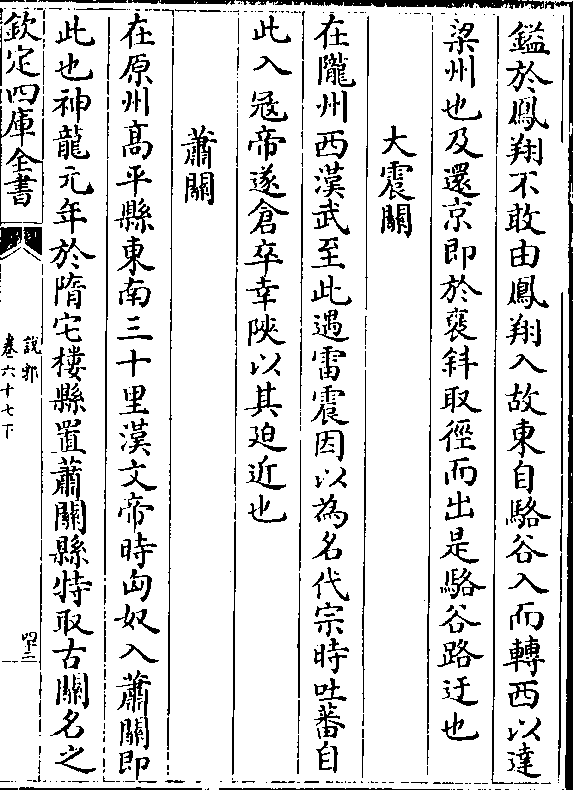 鑑於鳳翔不敢由鳳翔入故東自駱谷入而轉西以達
梁州也及還京即於襃斜取徑而出是駱谷路迂也
大震關
在隴州西漢武至此遇雷震因以為名代宗時吐蕃自
此入冦帝遂倉卒幸陜以其廹近也
蕭關
在原州髙平縣東南三十里漢文帝時匈奴入蕭關即
此也神龍元年於隋宅樓縣置蕭關縣特取古關名之
欽定四庫全書
說郛
卷六十七下
四十二